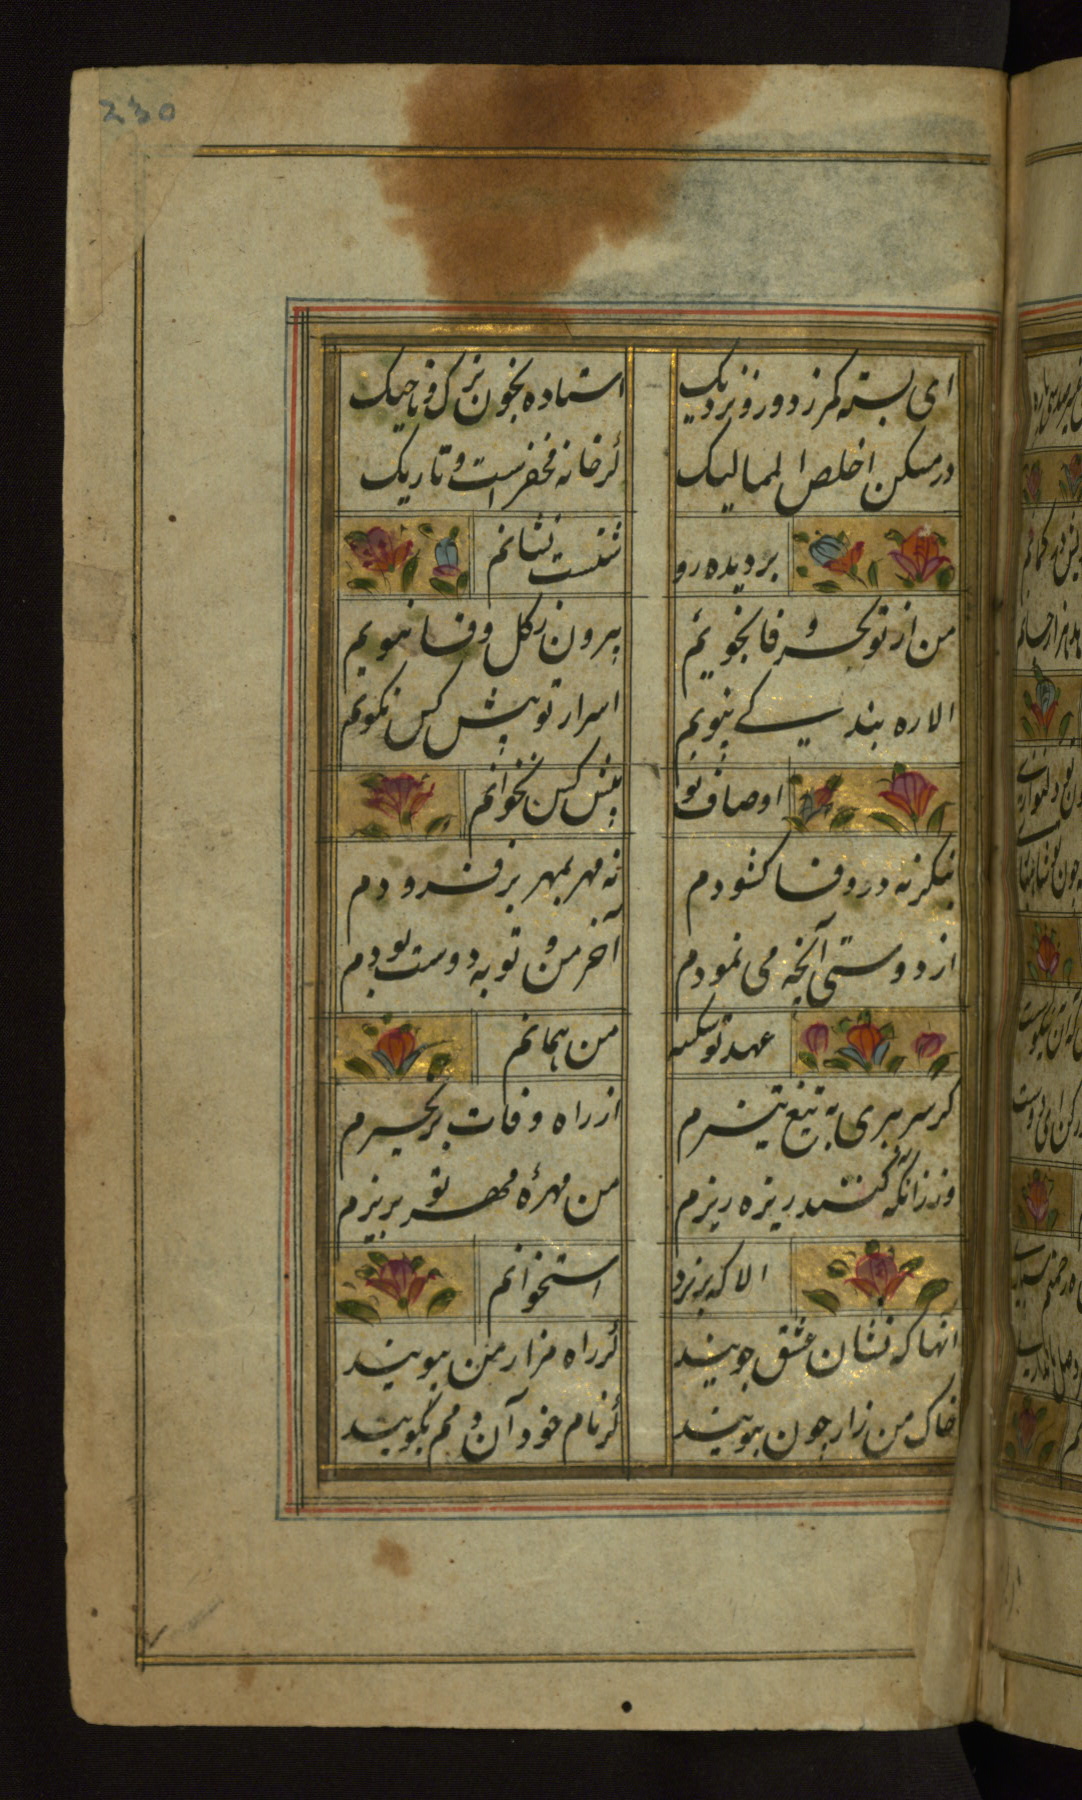 230
ای بسته کمر ز دور و نزدیک استاده بخون ترک و تاجیک
در مسکن اخلص الممالیک گر خانه محقر است و تاریک
بر دیده رو شنت نشانم
من از تو بجز وفا نجویم بیرون ز گل وفا نبویم
الا ره بندگی نپویم اسرار تو پیش کس نگویم
اوصاف تو پیش کس نخوانم
نه مهر بمهر بر فزودم
از دوستی آنچه می نمودم آخر من و تو به دوست بودم
عهد تو شکست من همانم
گر سر ببری به تیغ تیزم از راه وفات بر نخیزم
ور زانکه کنند ریزه ریزم من مهره مهر تو نریزم
الا که بریزد استخوانم
انها که نشان عشق جویند گر راه مزار من بپویند
خاک من زار چون ببویند گر نام خود آن دمم بگویند